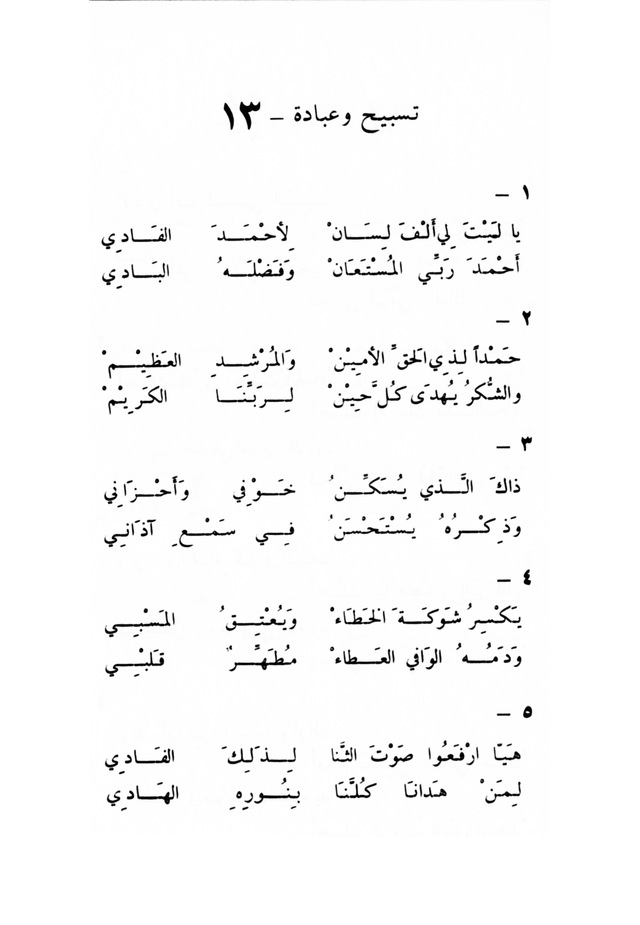 تسبيح وعبادة - ١٣
١ -
يا لَيْتَ لِي أَلْفَ لِسَانْ لِأَحْمَدَ الفَادِي
أَحْمَدَ رَبِّي المُسْتَعَانْ وَفَضْلَهُ البَادِي
٢ -
حَمْداً لِذِي الحَقِّ الأمِينْ وَالمُرْشِدِ العَظِيمْ
والشُّكرُ يُهدَى كُلَّ حِيْنْ لِرَبِّنَا الكَرِيْمْ
٣ -
ذاكَ الَّذي يُسَكِّنُ خَوْفِي وَأَحْزَانِي
وَذِكْرُهُ يُسْتَحْسَنُ فِي سَمْعِ آذَانِي
٤ -
يَكْسِرُ شَوكَةَ الخَطَاءْ وَيُعْتِقُ المَسْبِي
وَدَمُهُ الوَافي العَطاءْ مُطَهِّرٌ قَلبِْي
٥ -
هَيَّا ارْفَعُوا صَوْتَ الثَّنا لِذَلِكَ الفَادِي
لِمَنْ هَدَانَا كُلَّنَا بِنُورِهِ الهَادِي